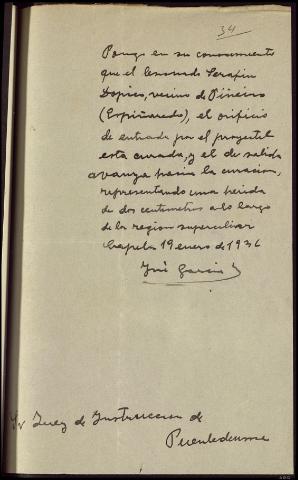 34
Pongo en su conocimiento
que el lesionado Serafin
Dopico, vecino de Piñeiro
(Espiñaredo), el orificio
de entrada por el proyectil
esta curada, y el de salida
avanza hacia la curacion,
representando una herida
de dos centimetros a lo largo
de la region superciliar
Capela 19 enero de 1936
José Garcia
Sr Juez de Instruccion de
Puentedeume